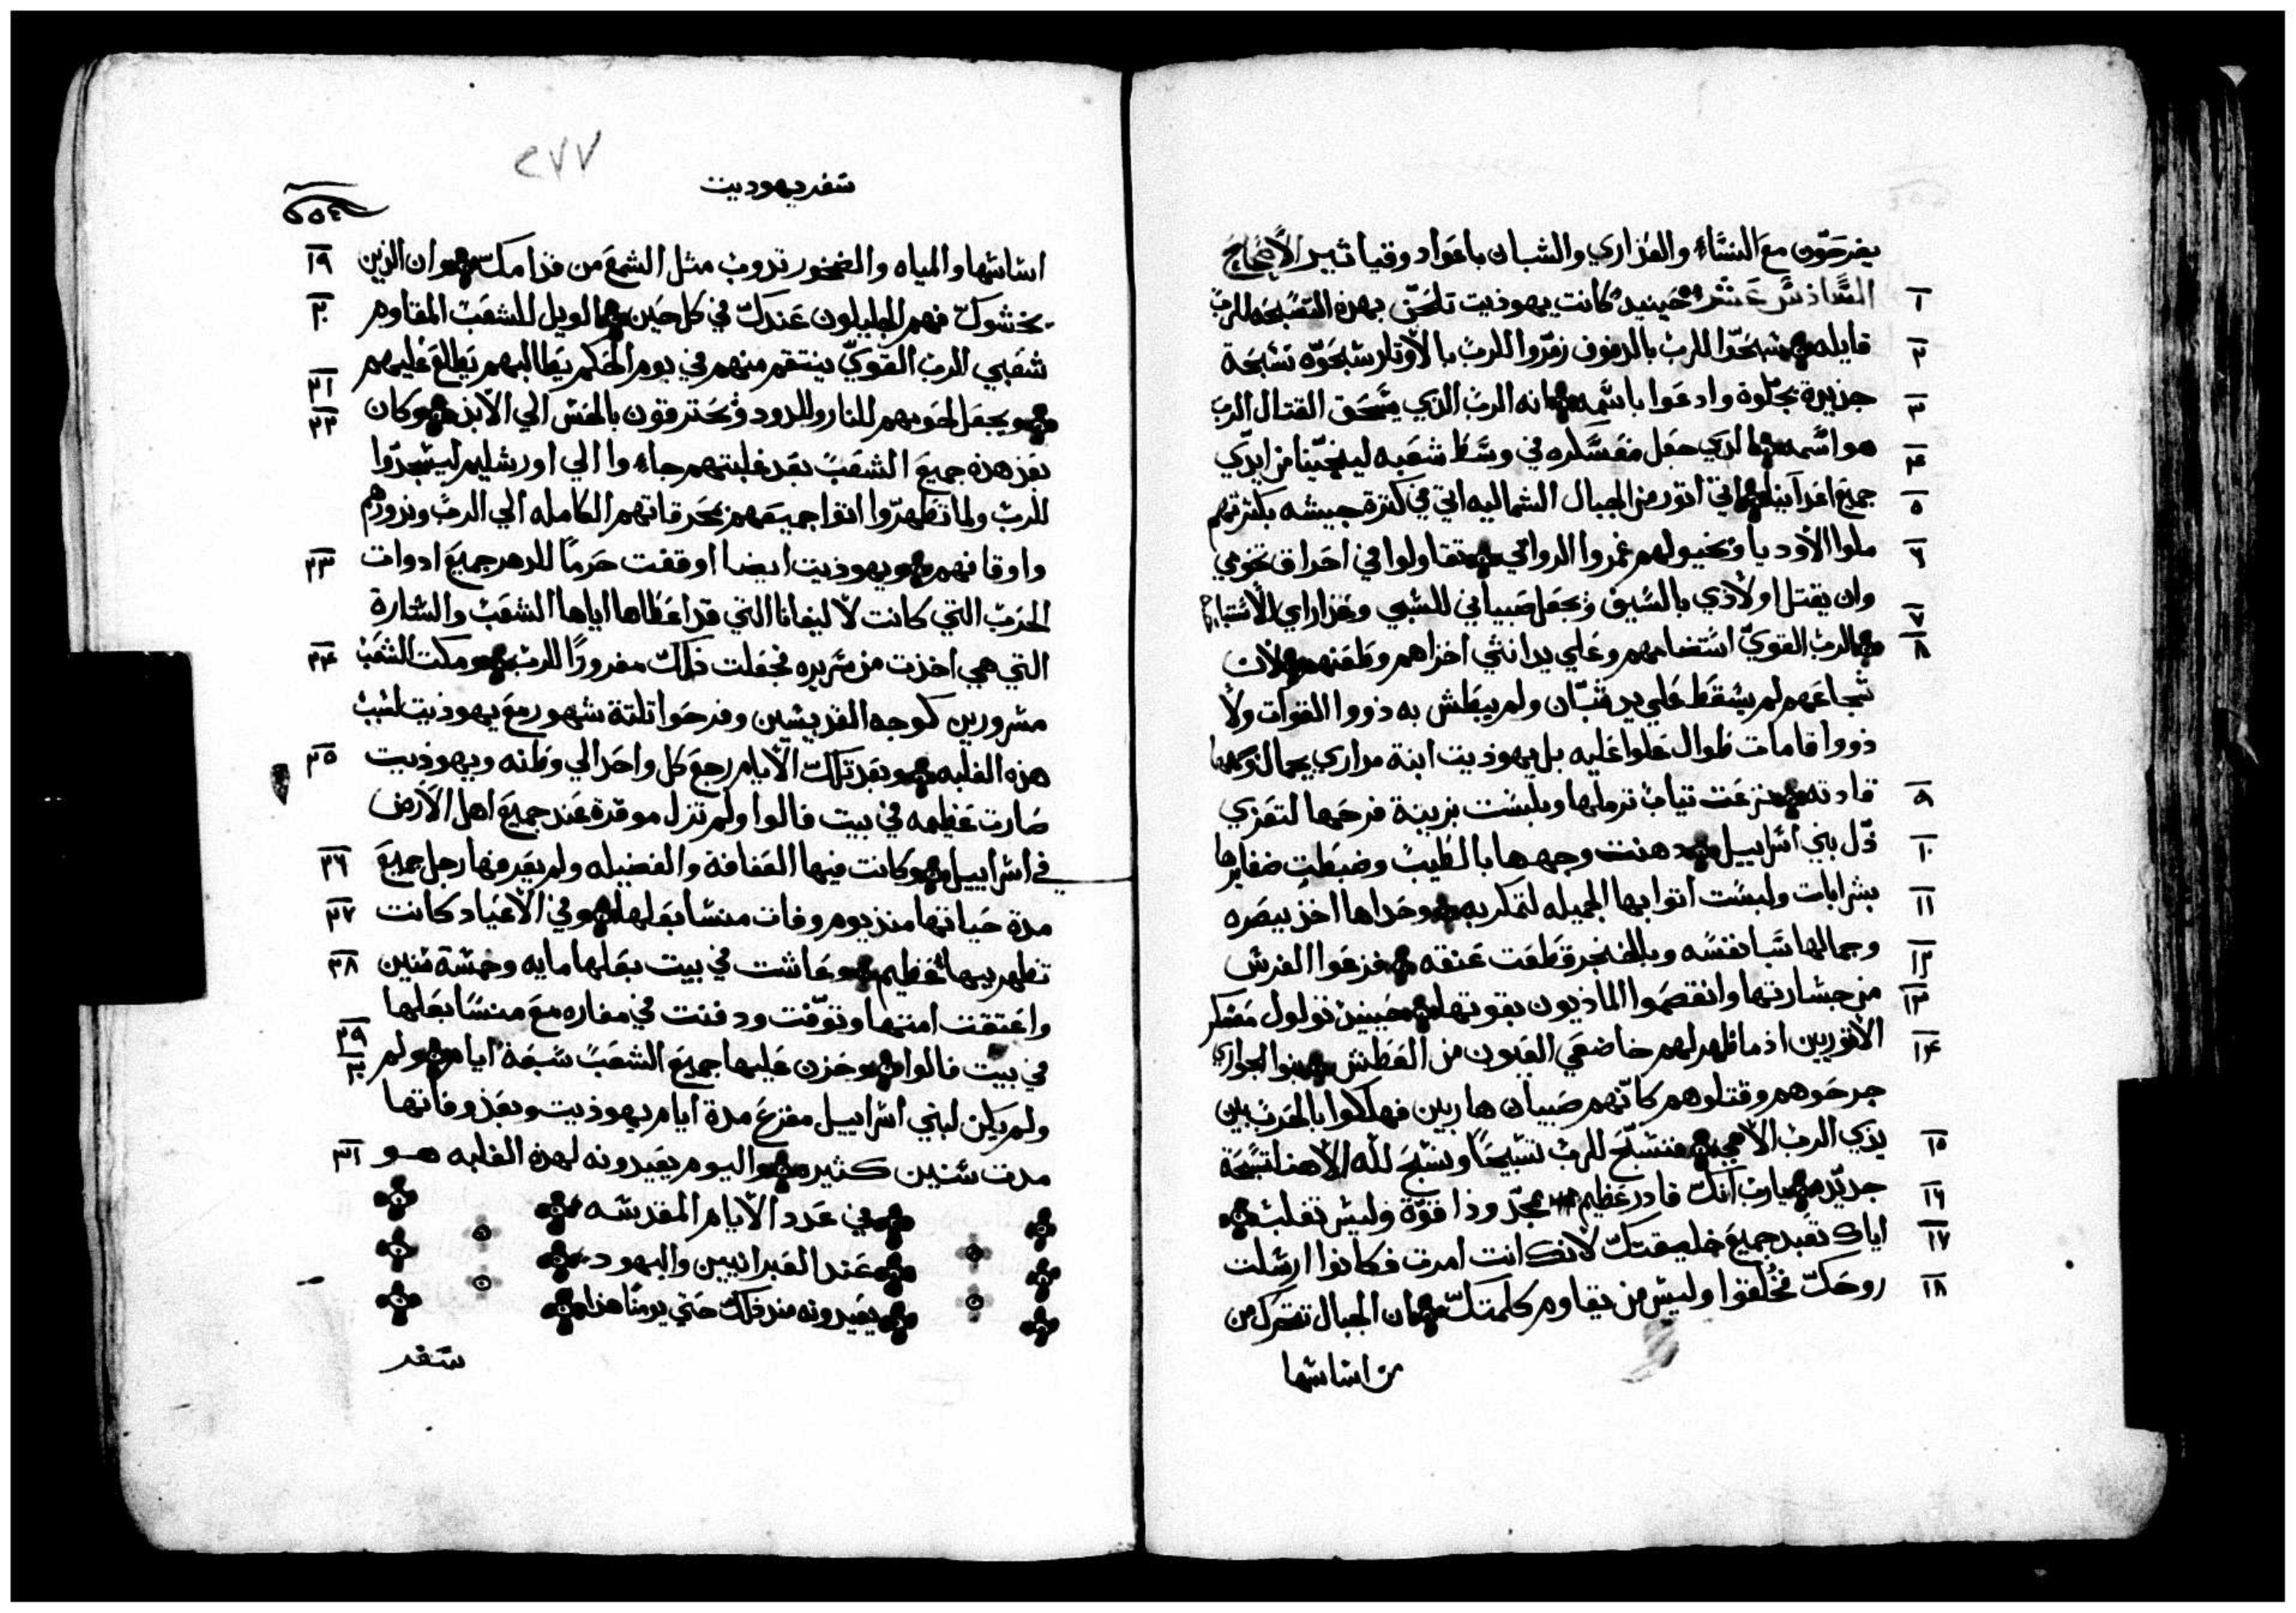 يفرحون مع النساء والعذاري والشبان باعواد وقياثير الاصحاح
١ السادس عشر حينيد كانت يهوديت تلحن بهذه التسبحه للرب
٢ قايله سبحوا للرب بالدفوف زمروا للرب بالاوتار سبحوه تسبحة
٣ جزيرة بحلوة وادعوا باسمه انه الرب الذي يسحق القتال الرب
٤ هو اسمه الذي جعل معسكره في وسط شعبه لينجينا من ايدي
٥ جميع اعداينا اتي اتور من الجبال الشماليه اتي في كثرة جيشه بكثرتهم
٦ ملوا الاوديا وبخيولهم غمروا الروابي تقاولوا في احراق تخومي
٧ وان يقتل اولادي بالسيف ويجعل صبياني للسبي وعذاراي للاستباح
٨ الرب القوي استضامهم وعلي يد انثي اخزاهم وطعنهم لان
شجاعهم لم يسقط علي يد شبان ولم يبطش به ذووا القوات ولا
ذووا قامات طوال علوا عليه بل يهوديت ابنة مراري بجمال وجهها
٩ قادته نزعت تياب ترملها ولبست بزينة فرحها لتعزي
١٠ ذل بني اسراييل دهنت وجهها بالطيب وضبطت ضفايرها
١١ بشرابات ولبست اتوابها الجميله لتمكر به وحداها اخذ بيصره
١٢ وجمالها سبا نفسه وبالخنجر قطعت عنقه فزعوا الفرس
١٣ من جسارتها وانقصموا الماذيون بقوتها حينيذ تولول معسكر
١٤ الاتوريين اذ ما ظهر لهم خاضعي العيون من العطش بنوا الجواري
جرحوهم وقتلوهم كانهم صبيان هاربين فهلكوا بالحرب بين
١٥ يدي الرب الاهي فنسبح للرب تسبيحا ونسبح لله الاهنا تسبحة
١٦ جديد يارب انك قادر عظيم مجد وذا قوة وليس تغلب
١٧ اياك تعبد جميع خليقتك لانك انت امرت فكانوا ارسلت
١٨ روحك تخلقوا وليس من يقاوم كلمتك ان الجبال تتحرك من
من اساسها
٢٧٧
سفر يهوديت
١٩ اساسها والمياه والصخور تدوب مثل الشمع من قدامك وان الذين
٢٠ يخشوك فهم الجليلون عندك في كل حين الويل للشعب المقاوم
٢١ شعبي الرب القوي ينتقم منهم في يوم الحكم يطالبهم يطالع عليهم
٢٢ ويجعل لحومهم للنار وللدود ويحترقون بالحس الي الابد وكان
بعد هذه جميع الشعب بعد غلبتهم جاءوا الي اورشليم ليسجدوا
للرب ولما تطهروا اتوا جميعهم بمحرقاتهم الكامله الي الرب ونذورهم
٢٣ واوقافهم ويهوديت ايضا اوقفت حرما للدهر جميع ادوات
الحرب التي كانت لاليفانا التي قد اعطاها اياها الشعب والستارة
٢٤ التي هي اخذت من سريره فجعلت ذلك مفروزا للرب ومكت الشعب
مسرورين كوجه القديسين وفرحوا تلتة شهور مع يهوديت لسبب
٢٥ هذه الغلبه وبعد تلك الايام رجع كل واحد الي وطنه ويهوديت
صارت عظيمه في بيت فالوا ولم تزل موقرة عند جميع اهل الارض
٢٦ في اسراييل وكانت فيها العفافة والفضيله ولم يعرفها رجل جميع
٢٧ مدة حياتها منذ يوم وفات منسا بعلها وفي الاعياد كانت
٢٨ تظهر ببهاء عظيم وعاشت في بيت بعلها مايه وخمسة سنين
واعتقت امتها وتوفت ودفنت في مغاره مع منسا بعلها
٢٩ ٣٠ في بيت فالوا وحزن عليها جميع الشعب سبعة ايام ولم
ولم يكن لبني اسراييل مفزع مدة ايام يهوديت وبعد وفاتها
٣١ مدت سنين كثيره واليوم يعيدونه لهذه الغلبه هو
في عدد الايام المقدسه
عند العبرانيين واليهود
يعيدونه منذ ذلك حتي يومنا هذا
سفر